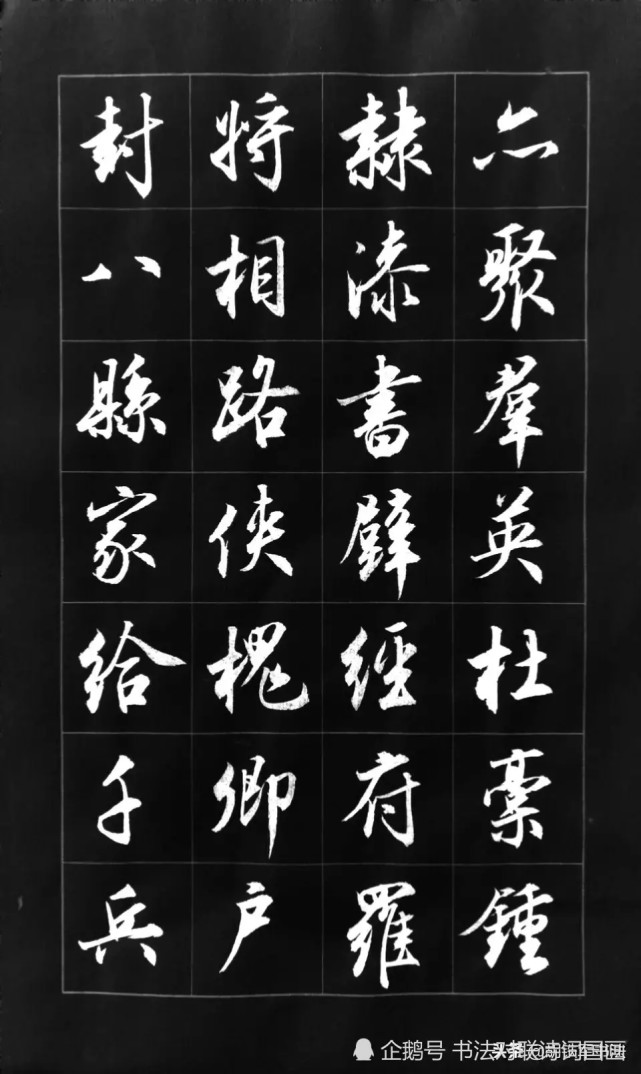 亦聚群英杜稾鍾
隸漆書壁經府羅
将相路俠槐卿户
封八縣家給千兵
企鹅号 书法
头条